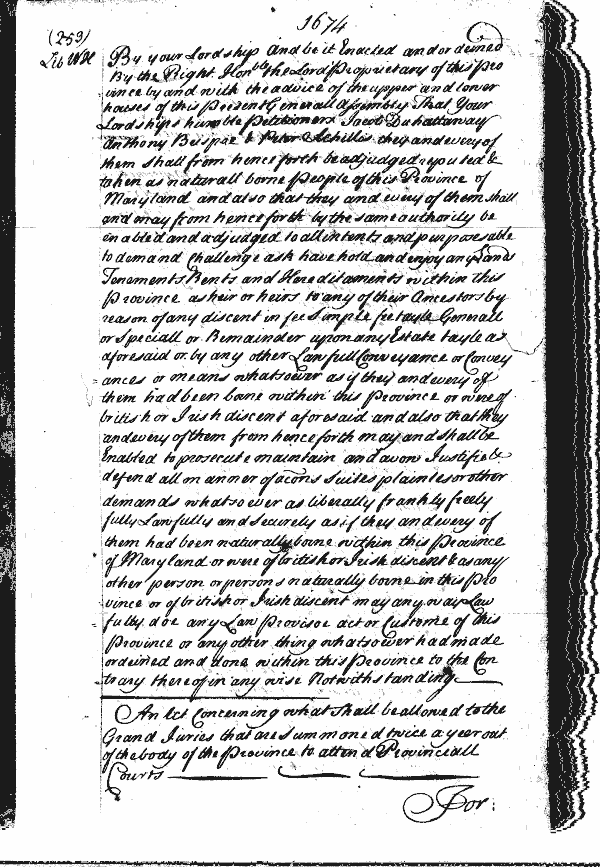 1674
(253)
Lib WH
By your Lordship and be it Enacted and ordeined
By the Right Honble the Lord Proprietary of this Pro
vince by and with the advice of the upper and lower
houses of this Present Generall Assembly That Your
Lordships humble Petitioners Jacob Duhattaway
Anthony Brispoe & Peter Achillis they and every of
them shall from henceforth be adjudged reputed &
taken as naturall borne People of this Province of
Maryland and also that they and every of them shall
and may from henceforth by the same authority be
enabled and adjudged to all intents and purposes able
to demand Challenge ask have hold and enjoy any Lands
Tenements Rents and Hereditaments within this
Province as heir or heirs to any of their Ancestors by
reason of any discent in fee Simple fee tayle Generall
or Speciall or Remainder upon any Estate tayle as
aforesaid or by any other Lawfull Conveyance or Convey
ances or means whatsoever as if they and every of
them had been borne within this Province or were of
british or Irish discent aforesaid and also that they
and every of them from henceforth may and shall be
Enabled to prosecute maintain and avow Justifie &
defend all manner of acons Suites plaintes or other
demands whatsoever as liberally frankly freely
fully Lawfully and Securely as if they and every of
them had been naturally borne within this Province
of Maryland or were of british or Irish discent & as any
other person or persons naturally borne in this Pro
vince or of british or Irish discent may any way Law
fully doe any Law Provisoe act or Custome of this
Province or any other thing whatsoever had made
ordeined and done within this Province to the Con
trary thereof in any wise Notwithstanding
An Act Concerning what shall be allowed to the
Grand Juries that are Summoned twice a year out
of the body of the Province to attend Provinciall
Courts
For: